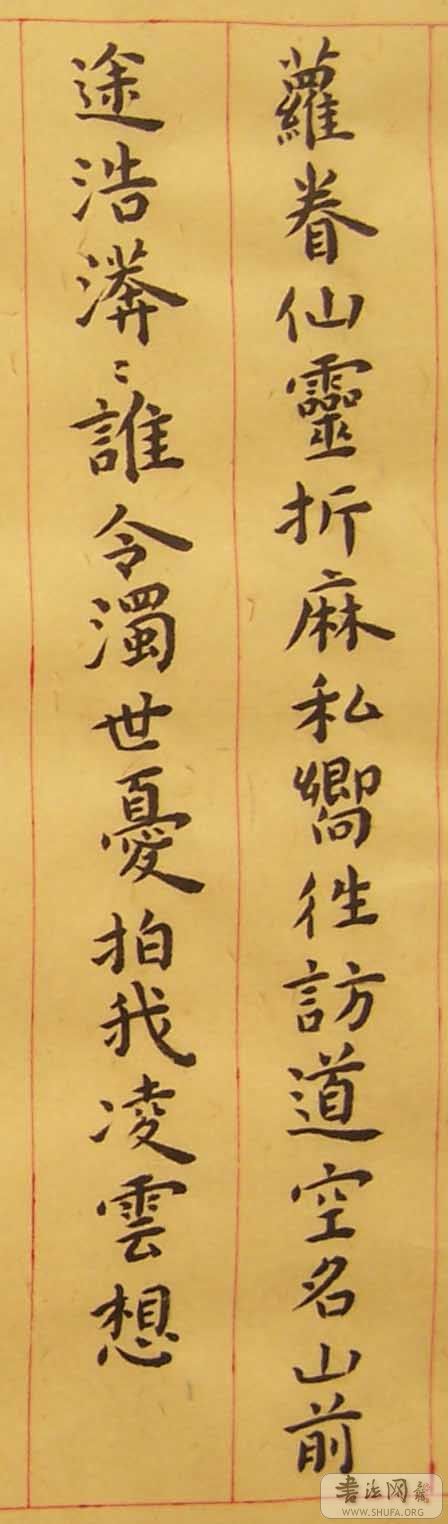 蘿眷仙靈折麻私嚮徃訪道空名山前
途浩漭〻誰令濁世憂拍我凌雲想
書法网
WWW.SHUFA.ORG